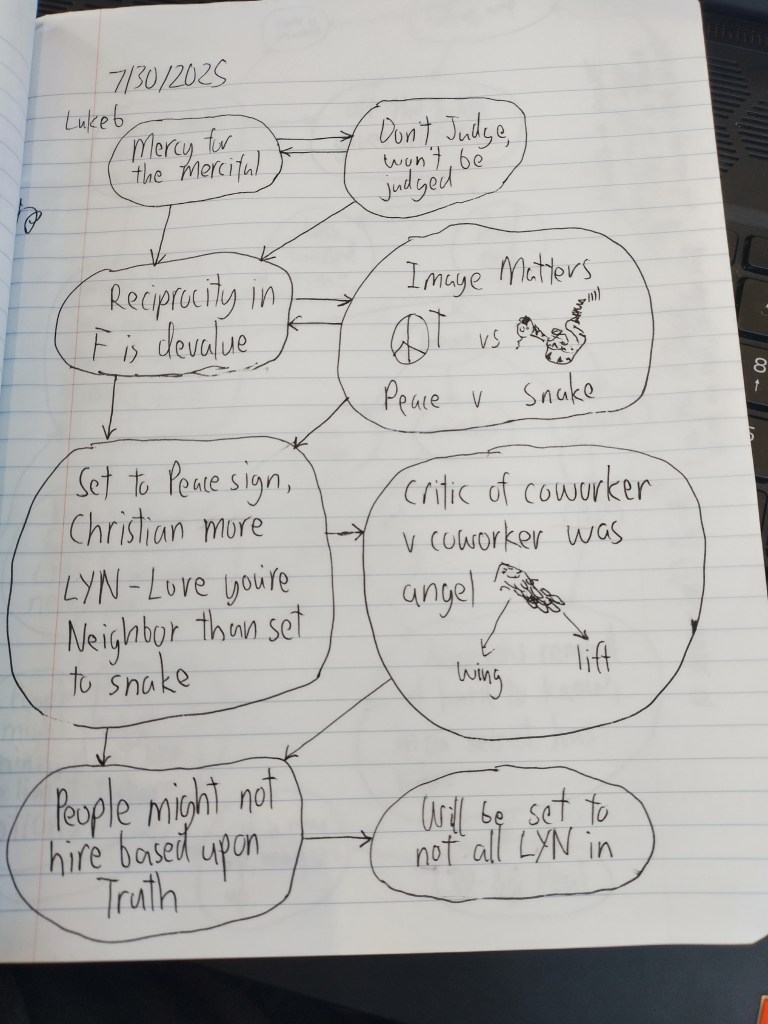 7/30/2025
Luke 6
Mercy for
the merciful
Don't Judge,
won't be
judged
Reciprocity in
F is devalue
Image Matters
vs
Peace v Snake
Set to Peace sign,
Christian more
LYN - Love you're
Neighbor than set
to snake
Critic of coworker
v coworker was
angel
wing
lift
People might not
hire based upon
Truth
Will be set to
not all LYN in
8